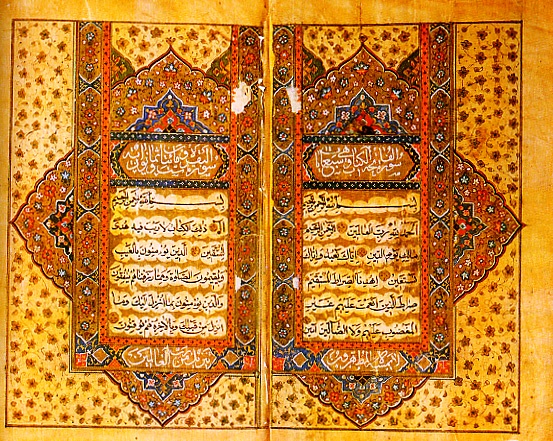 سورة فاتحة الكتاب سبع آيات
بسم الله الرحمن الرحيم
الحمد لله رب العالمين الرحمن الرحيم
مالك يوم الدين اياك نعبد واياك
نستعين اهدنا الصراط المستقيم
صراط الذين انعمت عليهم غير
المغضوب عليهم ولا الضالين
لا يمسه الا المطهرون
سورة البقرة
بسم الله الرحمن الرحيم
الم ذلك الكتاب لا ريب فيه هدى
للمتقين الذين يؤمنون بالغيب
ويقيمون الصلوة ومما رزقناهم ينفقون
والذين يؤمنون بما انزل اليك وما
انزل من قبلك وبالاخرة هم يوقنون
تنزيل من رب العالمين